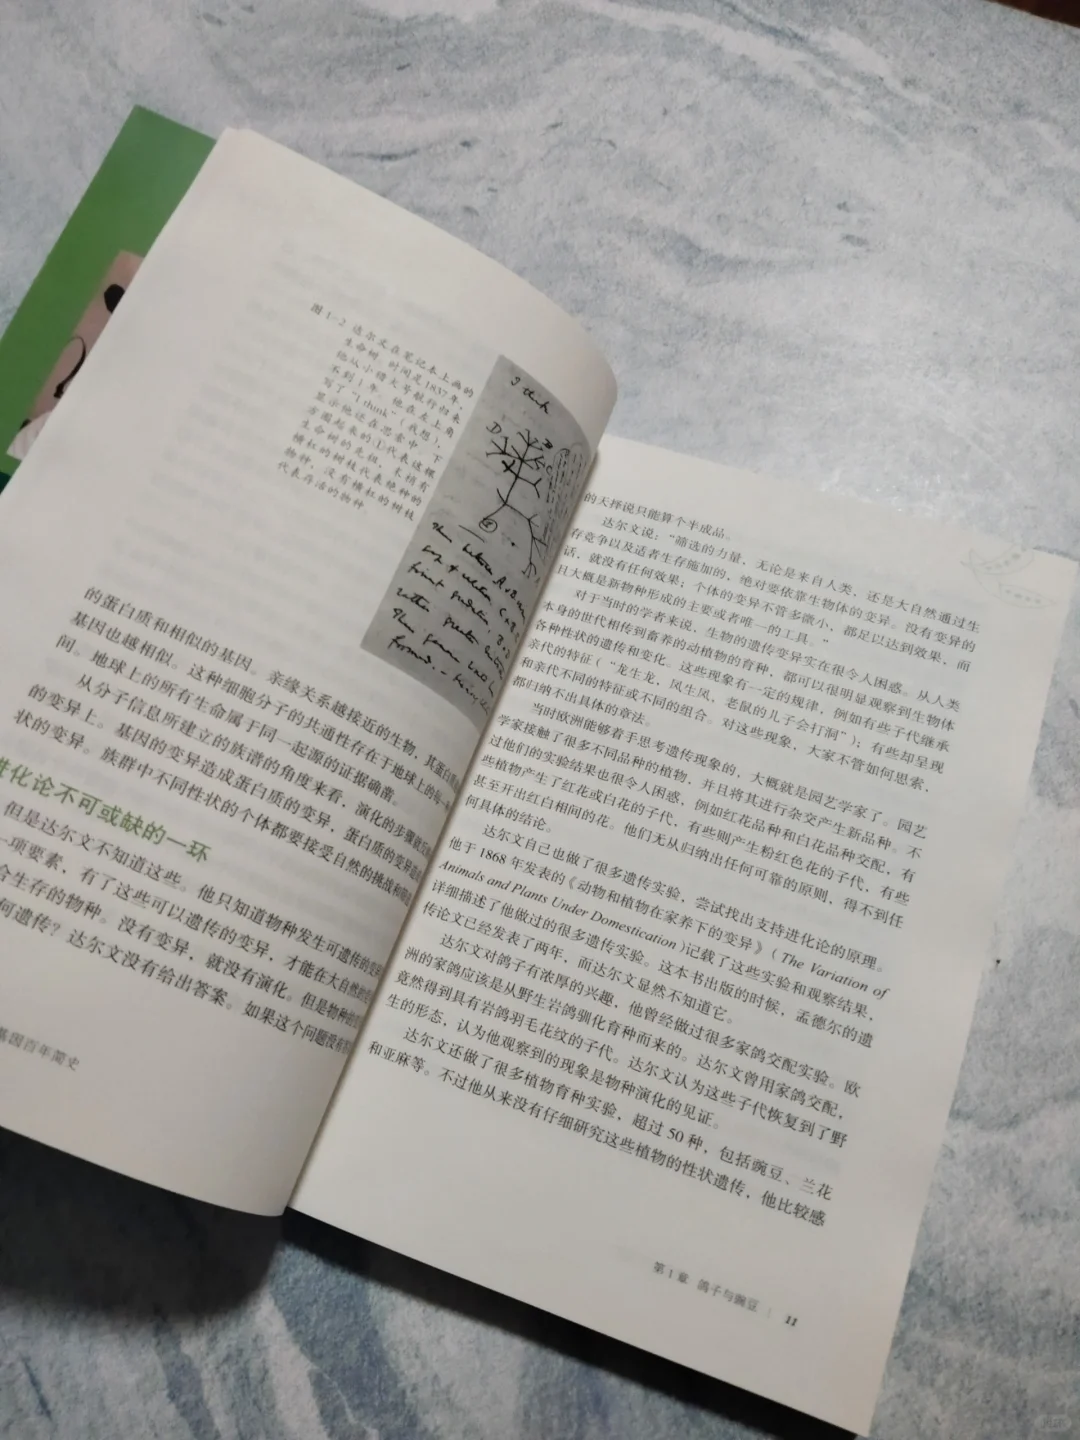 图 1-2 达尔文在笔记本上画的
生命树。时间是1837年，
他从小猎犬号航行归来
不到1年。他在左上角
写了“I think”（我想），
显示他还在思索中。下
方圈起来的①代表这棵
生命树的先祖，末梢有
横杠的树枝代表绝种的
物种，没有横杠的树枝
代表存活的物种。
I think
的蛋白质和相似的基因。亲缘关系越接近的生物，其蛋白质
基因也越相似。这种细胞分子的共通性存在于地球上的每一
间。地球上的所有生命属于同一起源的证据确凿。
从分子信息所建立的族谱的角度来看，演化的步骤就
的变异上。基因的变异造成蛋白质的变异，蛋白质的变异造
状的变异。族群中不同性状的个体都要接受自然的挑战和
进化论不可或缺的一环
但是达尔文不知道这些。他只知道物种发生可遗传的
一项要素，有了这些可以遗传的变异，才能在大自然
合生存的物种。没有变异，就没有演化。但是物种的
何遗传？达尔文没有给出答案。如果这个问题没有
基因百年简史
的天择说只能算个半成品。
达尔文说：“筛选的力量，无论是来自人类，还是大自然通过生
存竞争以及适者生存施加的，绝对要依靠生物体的变异。没有变异的
话，就没有任何效果；个体的变异不管多微小，都足以达到效果，而
且大概是新物种形成的主要或者唯一的工具。”
对于当时的学者来说，生物的遗传变异实在很令人困惑。从人类
本身的世代相传到畜养的动植物的育种，都可以很明显观察到生物体
各种性状的遗传和变化。这些现象有一定的规律，例如有些子代继承
亲代的特征（“龙生龙，凤生凤，老鼠的儿子会打洞”）；有些却呈现
和亲代不同的特征或不同的组合。对这些现象，大家不管如何思索，
都归纳不出具体的章法。
当时欧洲能够着手思考遗传现象的，大概就是园艺学家了。园艺
学家接触了很多不同品种的植物，并且将其进行杂交产生新品种。不
过他们的实验结果也很令人困惑，例如红花品种和白花品种交配，有
些植物产生了红花或白花的子代，有些则产生粉红色花的子代，有些
甚至开出红白相间的花。他们无从归纳出任何可靠的原则，得不到任
何具体的结论。
达尔文自己也做了很多遗传实验，尝试找出支持进化论的原理。
他于 1868 年发表的《动物和植物在家养下的变异》（The Variation of
Animals and Plants Under Domestication）记载了这些实验和观察结果，
详细描述了他做过的很多遗传实验。这本书出版的时候，孟德尔的遗
传论文已经发表了两年，而达尔文显然不知道它。
达尔文对鸽子有浓厚的兴趣，他曾经做过很多家鸽交配实验。欧
洲的家鸽应该是从野生岩鸽驯化育种而来的。达尔文曾用家鸽交配，
竟然得到具有岩鸽羽毛花纹的子代。达尔文认为这些子代恢复到了野
生的形态，认为他观察到的现象是物种演化的见证。
达尔文还做了很多植物育种实验，超过 50 种，包括豌豆、兰花
和亚麻等。不过他从来没有仔细研究这些植物的性状遗传，他比较感
第 1 章 鸽子与豌豆 | 11